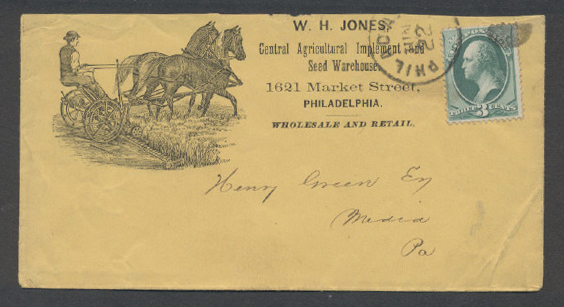 W. H. JONES,
Central Agricultural Implement and
Seed Warehouse
1621 Market Street,
PHILADELPHIA.
WHOLESALE AND RETAIL.
PHIL
22
THREE 3 CENTS
Henry Green Esq
Media
Pa